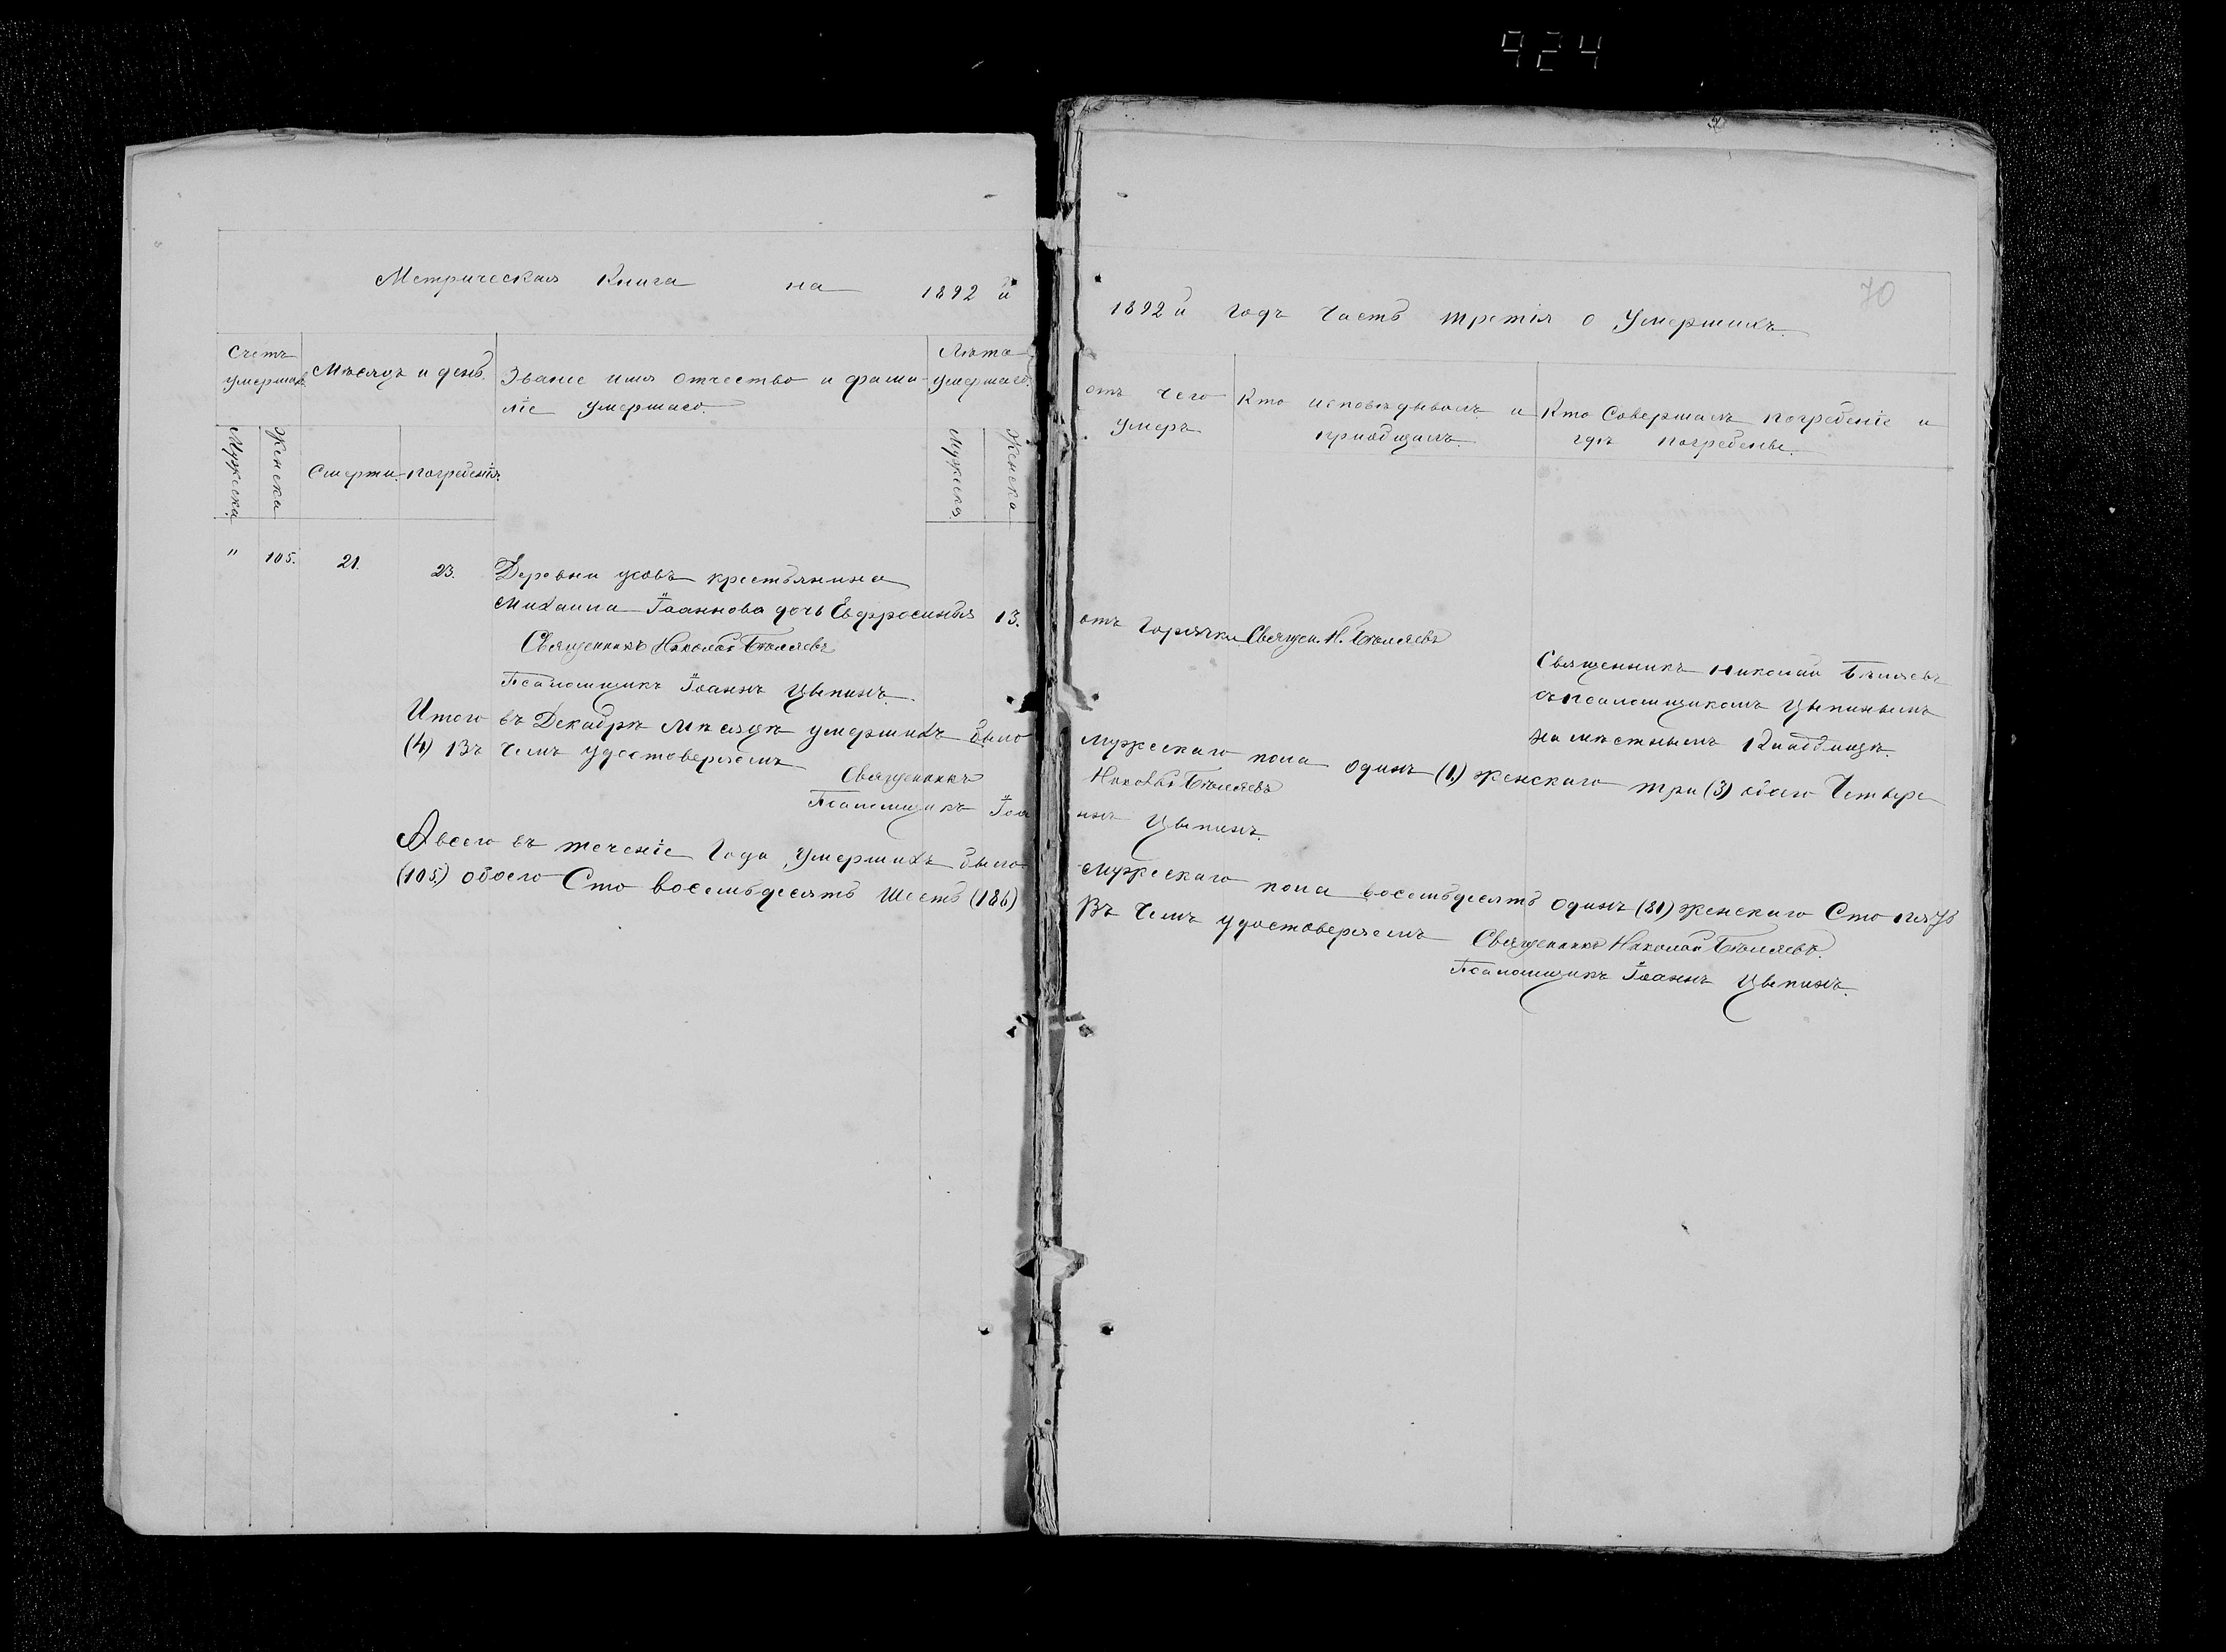 924
Метрическая Книга на 1892 й
Счетъ умершихъ
Мѣсяцъ и день.
Званіе имя отчество и фами-
ліе умершаго.
Лѣта умершаго.
Мужеска.
Женска
Смерти.
погребенія.
Мужеска.
Женска
" 105. 21. 23. Деревни усовъ крестьянина
Михаила Іоаннова дочь Евфросинья 13.
Священникъ Николай Бѣляевъ
Псаломщикъ Іоаннъ Цыпинъ.
Итого въ Декабрѣ мѣсяцѣ умершихъ было
(4) Въ чемъ удостоверяемъ
Священникъ
Псаломщикъ Іоа
А всего въ теченіе Года умершихъ было
(105) обоего Сто восемьдесятъ шесть (186)
70
1892 й годъ часть третія о умершихъ.
отъ чего
умеръ
Кто исповѣдывалъ и
приобщалъ.
Кто Совершалъ погребеніе и
гдѣ погребены.
отъ горячки Священ. Н. Бѣляевъ
Священникъ Николай Бѣляевъ
съ псаломщикомъ Цыпинымъ
на мѣстномъ кладбищѣ.
Мужескаго пола одинъ (1.) женскаго три (3) обоего Четыре
Николай Бѣляевъ
ннъ Цыпинъ.
Мужескаго пола восемьдесятъ одинъ (81) женскаго Сто пять
Въ чемъ удостоверяемъ Священникъ Николай Бѣляевъ.
Псаломщикъ Іоаннъ Цыпинъ.